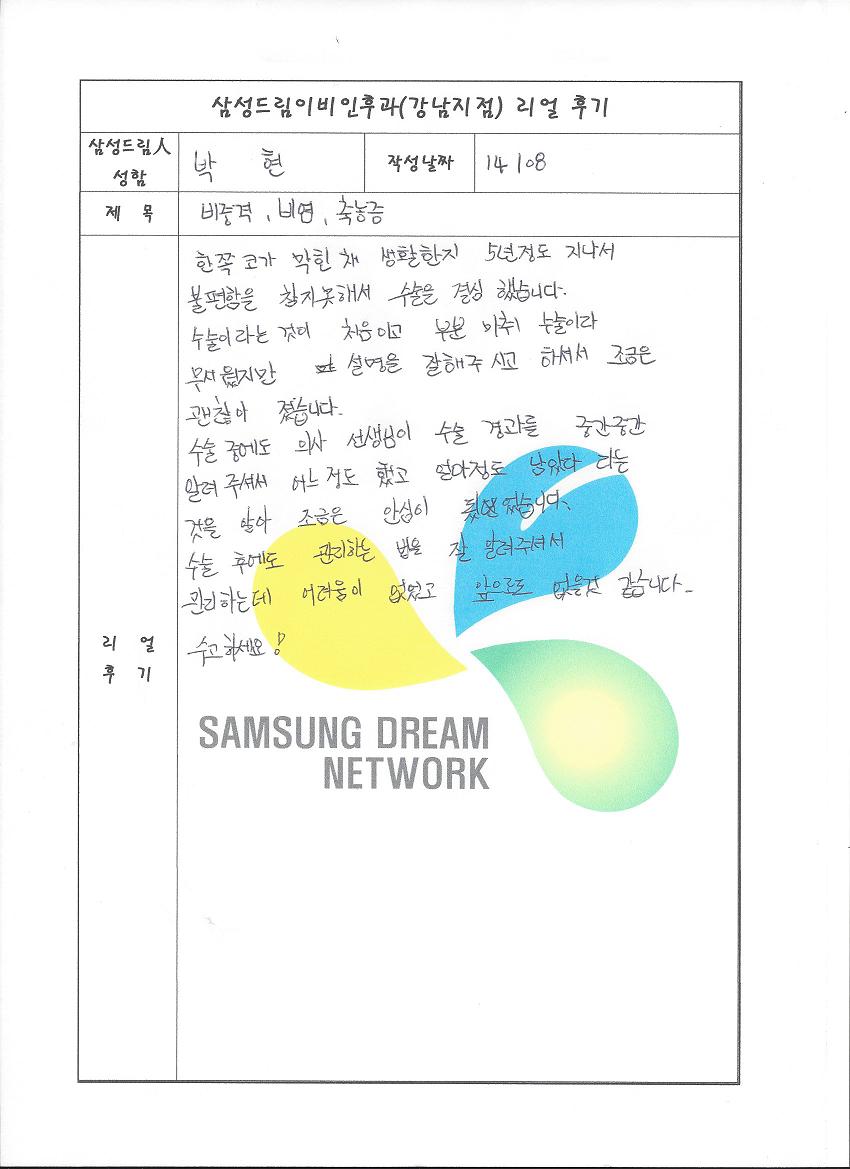 삼성드림이비인후과(강남지점) 리얼 후기
삼성드림人 성함
박 현
작성날짜
14 1 08
제 목
비중격, 비염, 축농증
리 얼 후 기
한쪽 코가 막힌 채 생활한지 5년정도 지나서
불편함을 참지못해서 수술을 결심 했습니다.
수술이라는 것이 처음이고 부분 마취 수술이라
무서웠지만 설명을 잘해주시고 하셔서 조금은
괜찮아 졌습니다.
수술 중에도 의사 선생님이 수술 경과를 중간중간
알려 주셔서 어느정도 했고 얼마정도 남았다 라는
것을 알아 조금은 안심이 되었습니다.
수술 후에도 관리하는 법을 잘 알려주셔서
관리하는데 어려움이 없었고 앞으로도 없을것 같습니다.
수고하세요!
SAMSUNG DREAM
NETWORK